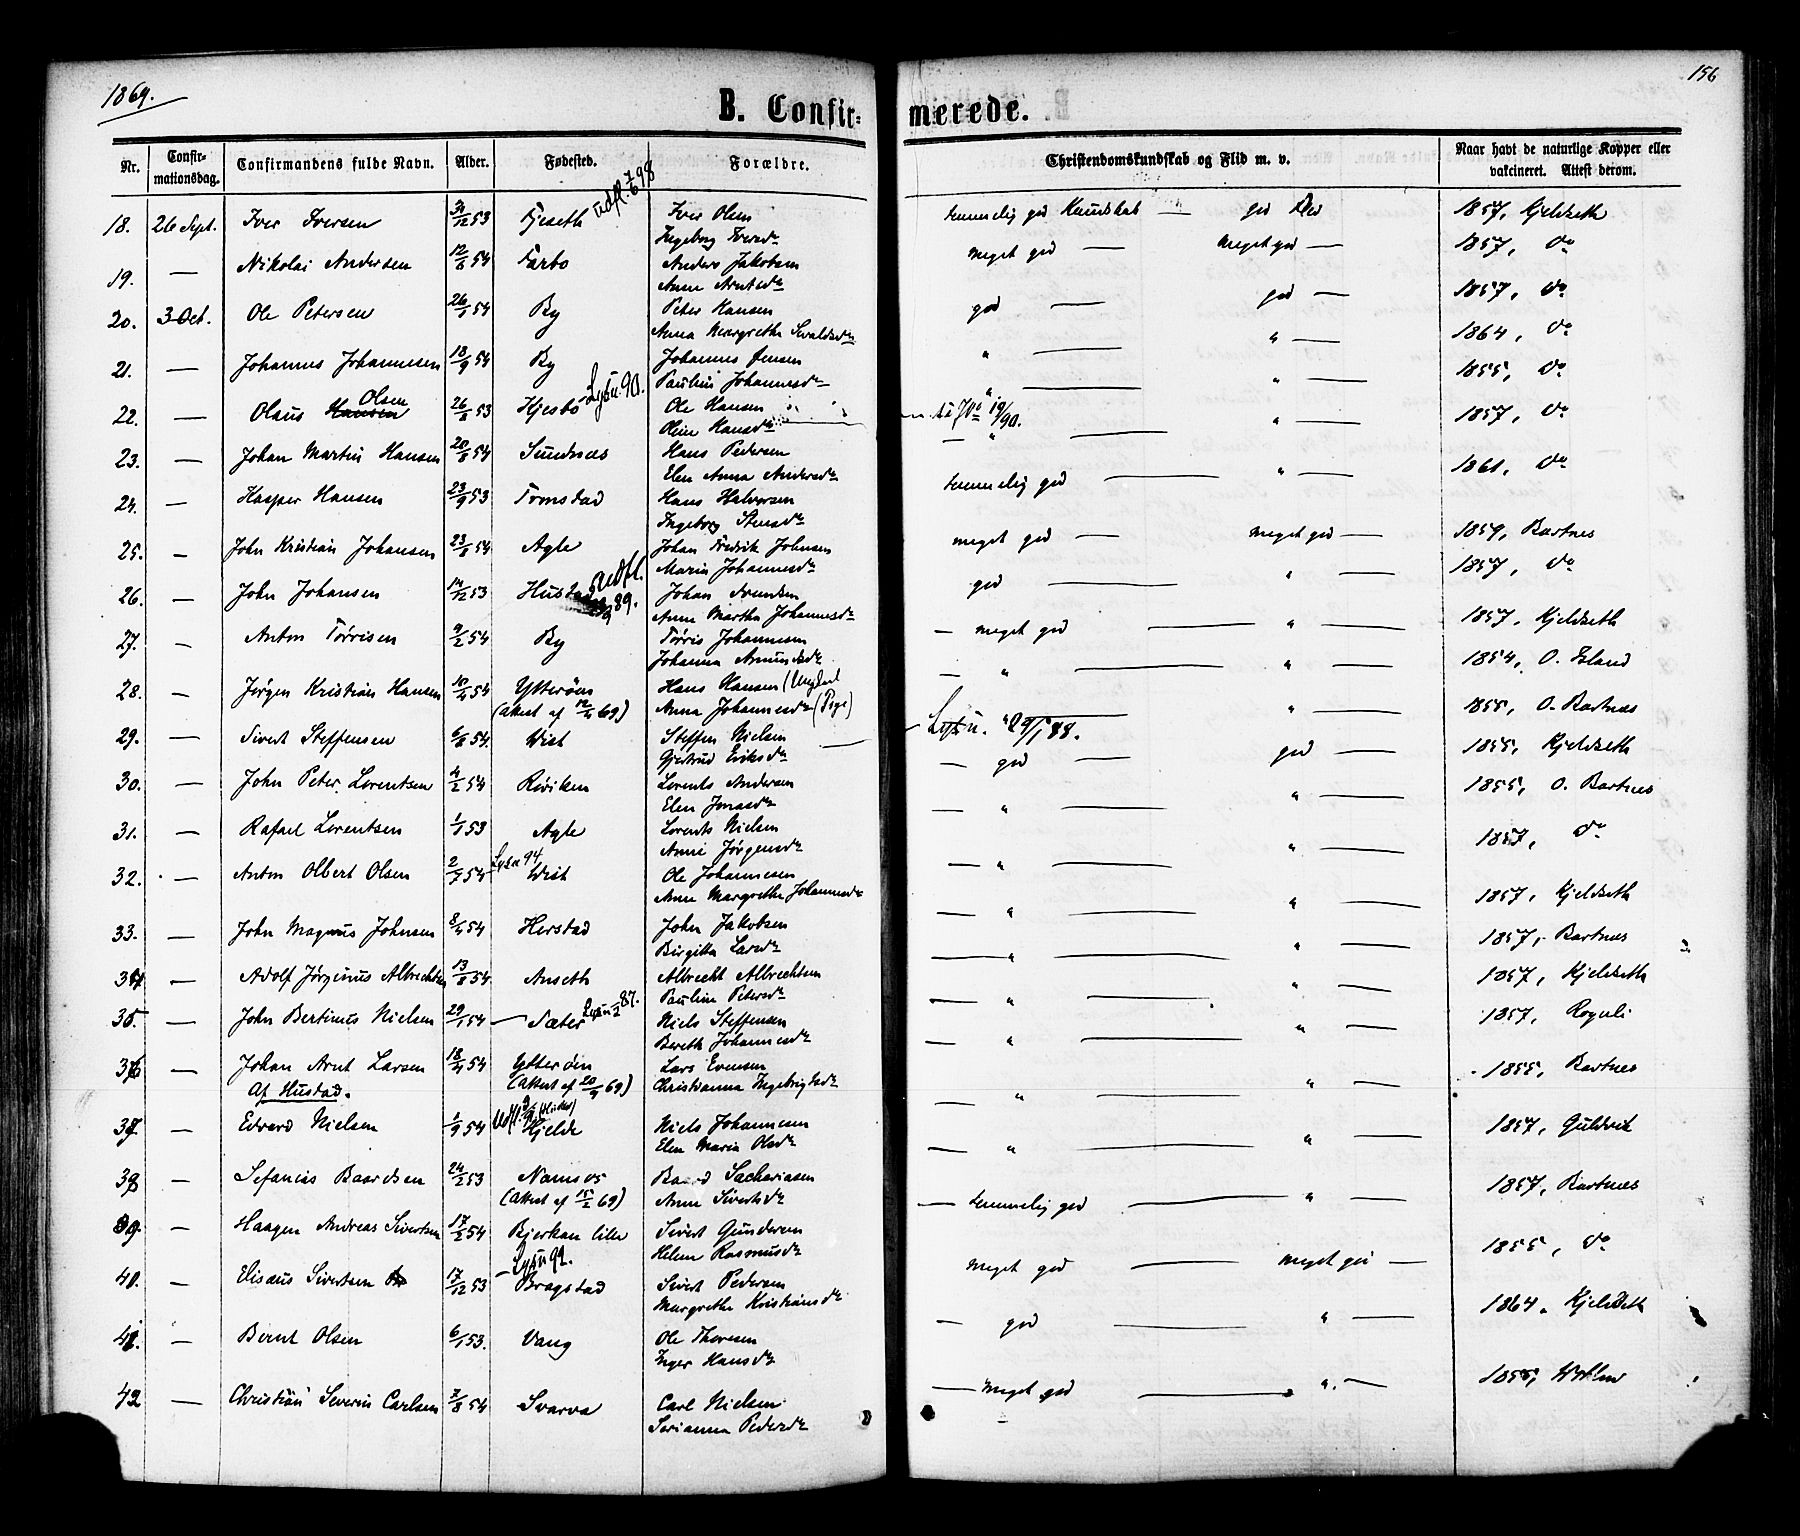 1869.
156
B. Confir-
merede.
Nr. Confirmationsdag. Confirmandens fulde Navn. Alder. Fødested. Forældre. Christendomskundskab og Flid m. v. Naar havt de naturlige Kopper eller vakcineret. Attest derom.
18. 26 Sept. Iver Iversen 31/12 53 Fjeseth udfl. 7/6 98 Iver Olsen temmelig god Kundskab — god Flid 1857, Kjeldseth
Ingeborg Iversdr
19. — Nikolai Andersen 12/6 54 Farbo Anders Jakobsen meget god — meget god — 1857, do
Anne Arntsdr
20. 3 Oct. Ole Petersen 26/1 54 By Peter Hansen god — god — 1857, do
Anna Margrethe Sivaldsdr
21. — Johannes Johannesen 18/9 54 By Johannes Jensen " — " — 1864, do
Pauline Johannesdr
22. — Olaus Hansen Olsen 26/8 53 Hjesbo Lysn. 90. Ole Hansen " — " — 1855, do
Oline Hansdr 19/90.
23. — Johan Martin Hansen 20/8 54 Sundnæs Hans Pedersen — " — " — 1857, do
Elen Anna Andersdr
24. — Kasper Hansen 23/9 53 Tronstad Hans Halvorsen temmelig god — " — 1861, do
Ingeborg Stensdr
25. — John Kristian Johansen 23/8 54 Agle Johan Fredrik Johnsen meget god — meget god — 1859, Bartnes
Maria Johannesdr
26. — John Johansen 14/12 53 Hustad Udfl. 89. Johan god — " — 1857, do
Anne Martha Johannesdr
27. — Anton Tørrisen 9/2 54 By Tørris Johannesen — meget god — " — 1857, Kjeldseth
Johanna Amundsdr
28. — Jørgen Kristian Hansen 10/4 54 Ytterøen Hans Hansen (Ungkarl — " — " — 1854, O. Esland
(Attest af 12/4 69) Anna Johannesdr (Pige)
29. — Sivert Steffensen 6/8 54. Wist Steffen Nielsen — Lysn. 29/1 88. " — 1855, O. Bartnes
Gjertrud Eriksdr
30. — John Peter Lorentsen 4/2 54 Røviken Lorents Andersen — god — god — 1855, Kjeldseth
Elen Jonasdr
31. — Rafael Lorentsen 1/1 53 Agle Lorents Nielsen — " — " — 1855, O. Bartnes
Anne Jørgensdr
32. — Anton Olbert Olsen 2/7 54 Lysn 94 Wist Ole Johannesen — " — " — 1857, do
Anne Margrethe Johannesdr
33. — John Magnus Johnsen 8/4 54 Herstad John Jakobsen — " — " — 1857, Kjeldseth
Birgitta Larsdr
34 — Adolf Jørginus Albrechtsen 13/8 54 Anseth Albrecht Albrechtsen — " — " — 1857, Bartnes
Pauline Petersdr
35. — John Bertinus Nielsen 29/1 54 — Sæter Lysn 87. Niels Steffensen — " — " — 1857, Kjeldseth
Bereth Johannesdr
36 — Johan Arnt Larsen 18/4 54 Ytterøen Lars Evensen — " — " — 1857, Roguli
Af Hustad. (Attest af 20/9 69) Christianna Ingebrigtsdr
37 — Edvard Nielsen 1/9 54 Udfl. Hjelde Niels Johannesen — " — " — 1855, Bartnes
Elen Maria Olsdr
38 — Sefanias Baardsen 24/2 53 Namsos Baard Sachariasen — " — " — 1857, Guldvik
(Attest af 15/2 69) Anne Sivertsdr
39. — Haagen Andreas Sivertsen 17/2 54 Bjerkan lille Sivert Gundersen — temmelig god — " — 1857, Bartnes
Helene Rasmusdr
40. — Elisæus Sivertsen 17/12 53 — Lysn 92. Bragstad Sivert Pedersen meget god — meget god — 1855, do
Margrethe Kristiansdr
41. — Bernt Olsen 6/1 53. Vang Ole Thoresen — god — " — 1864. Kjeldseth
Inger Hansdr
42 — Christian Severin Carlsen 7/8 54 Svarva Carl Nielsen — meget god — " — 1855,
Serianna Pedersdr